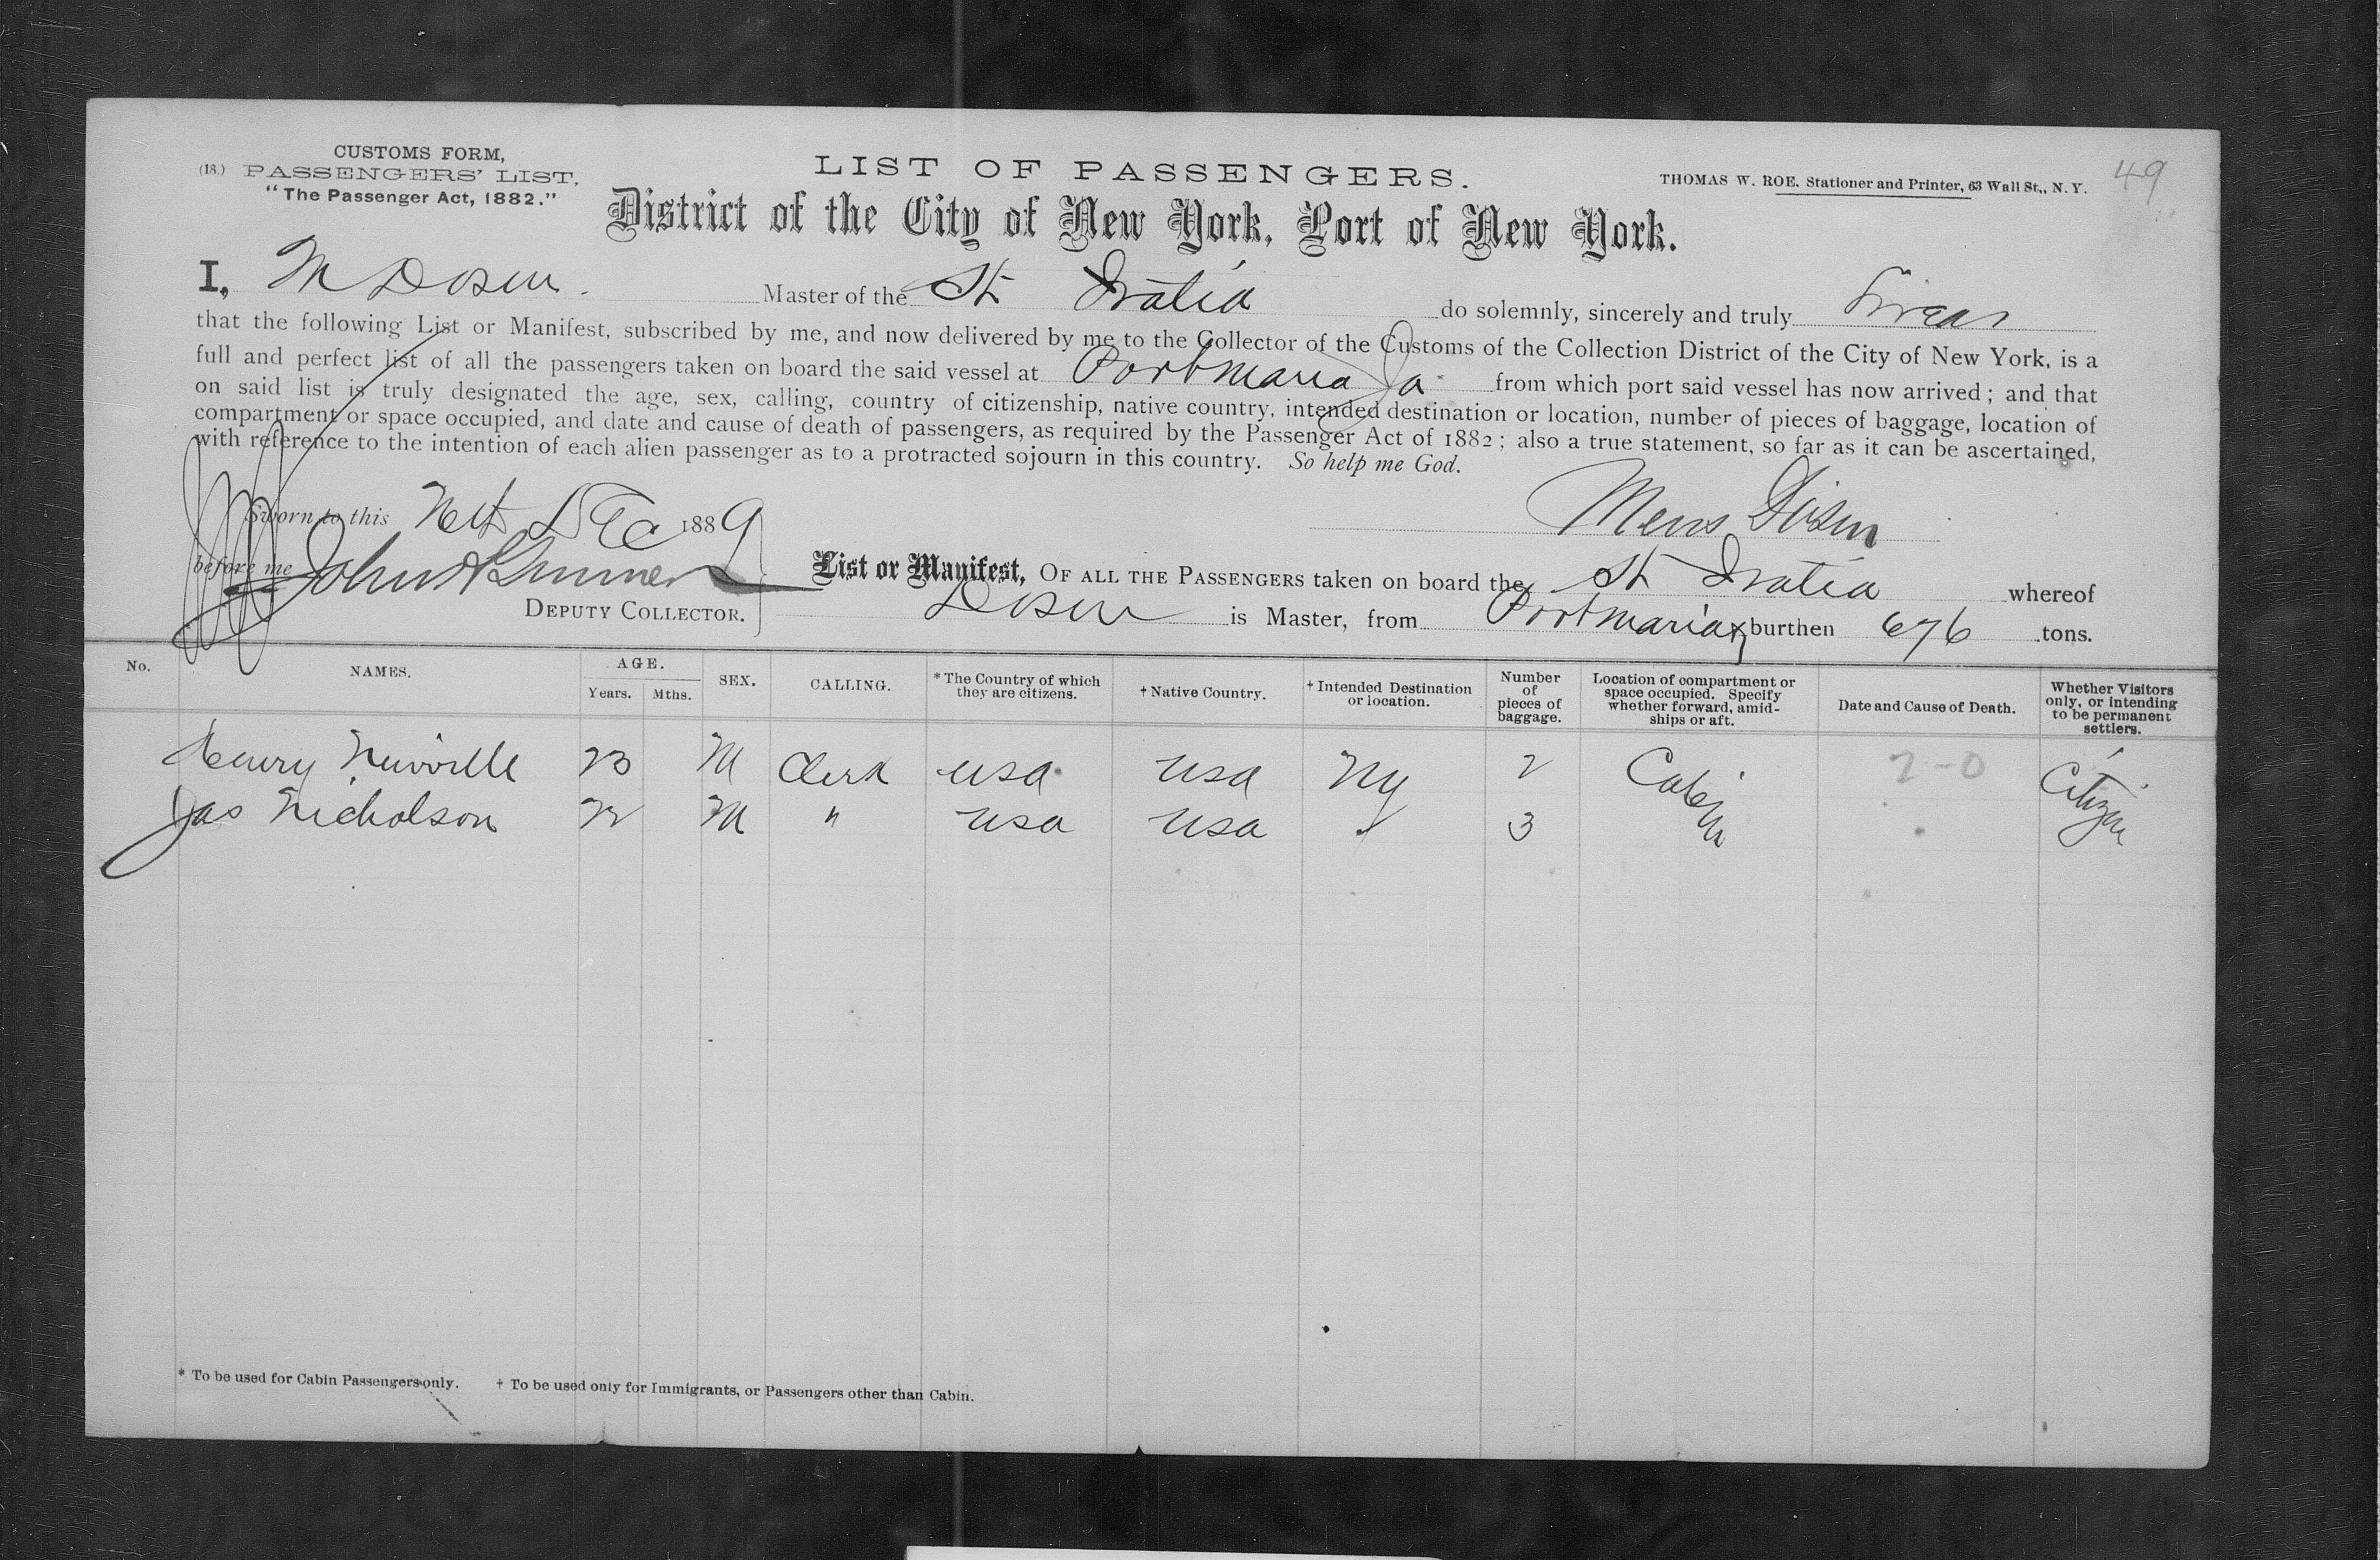 49
CUSTOMS FORM,
(18.) PASSENGERS' LIST,
"The Passenger Act, 1882."
LIST OF PASSENGERS.
THOMAS W. ROE. Stationer and Printer, 63 Wall St., N. Y.
District of the City of New York, Port of New York.
I, M Dosen. Master of the St Iratia do solemnly, sincerely and truly Swear
that the following List or Manifest, subscribed by me, and now delivered by me to the Collector of the Customs of the Collection District of the City of New York, is a
full and perfect list of all the passengers taken on board the said vessel at Port Maria Ja from which port said vessel has now arrived; and that
on said list is truly designated the age, sex, calling, country of citizenship, native country, intended destination or location, number of pieces of baggage, location of
compartment or space occupied, and date and cause of death of passengers, as required by the Passenger Act of 1882; also a true statement, so far as it can be ascertained,
with reference to the intention of each alien passenger as to a protracted sojourn in this country. So help me God.
Sworn to this Dec 1889
before me John
DEPUTY COLLECTOR.
List or Manifest, OF ALL THE PASSENGERS taken on board the St Iratia whereof
Dosen is Master, from Port Maria burthen 676 tons.
No. NAMES. AGE. Years. Mths. SEX. CALLING. * The Country of which they are citizens. † Native Country. † Intended Destination or location. Number of pieces of baggage. Location of compartment or space occupied. Specify whether forward, amidships or aft. Date and Cause of Death. Whether Visitors only, or intending to be permanent settlers.
Henry 23 M Clerk USA USA NY 2 Cabin 2-0 Citizen
Jas Nicholson 22 M " USA USA 3
* To be used for Cabin Passengers only. † To be used only for Immigrants, or Passengers other than Cabin.